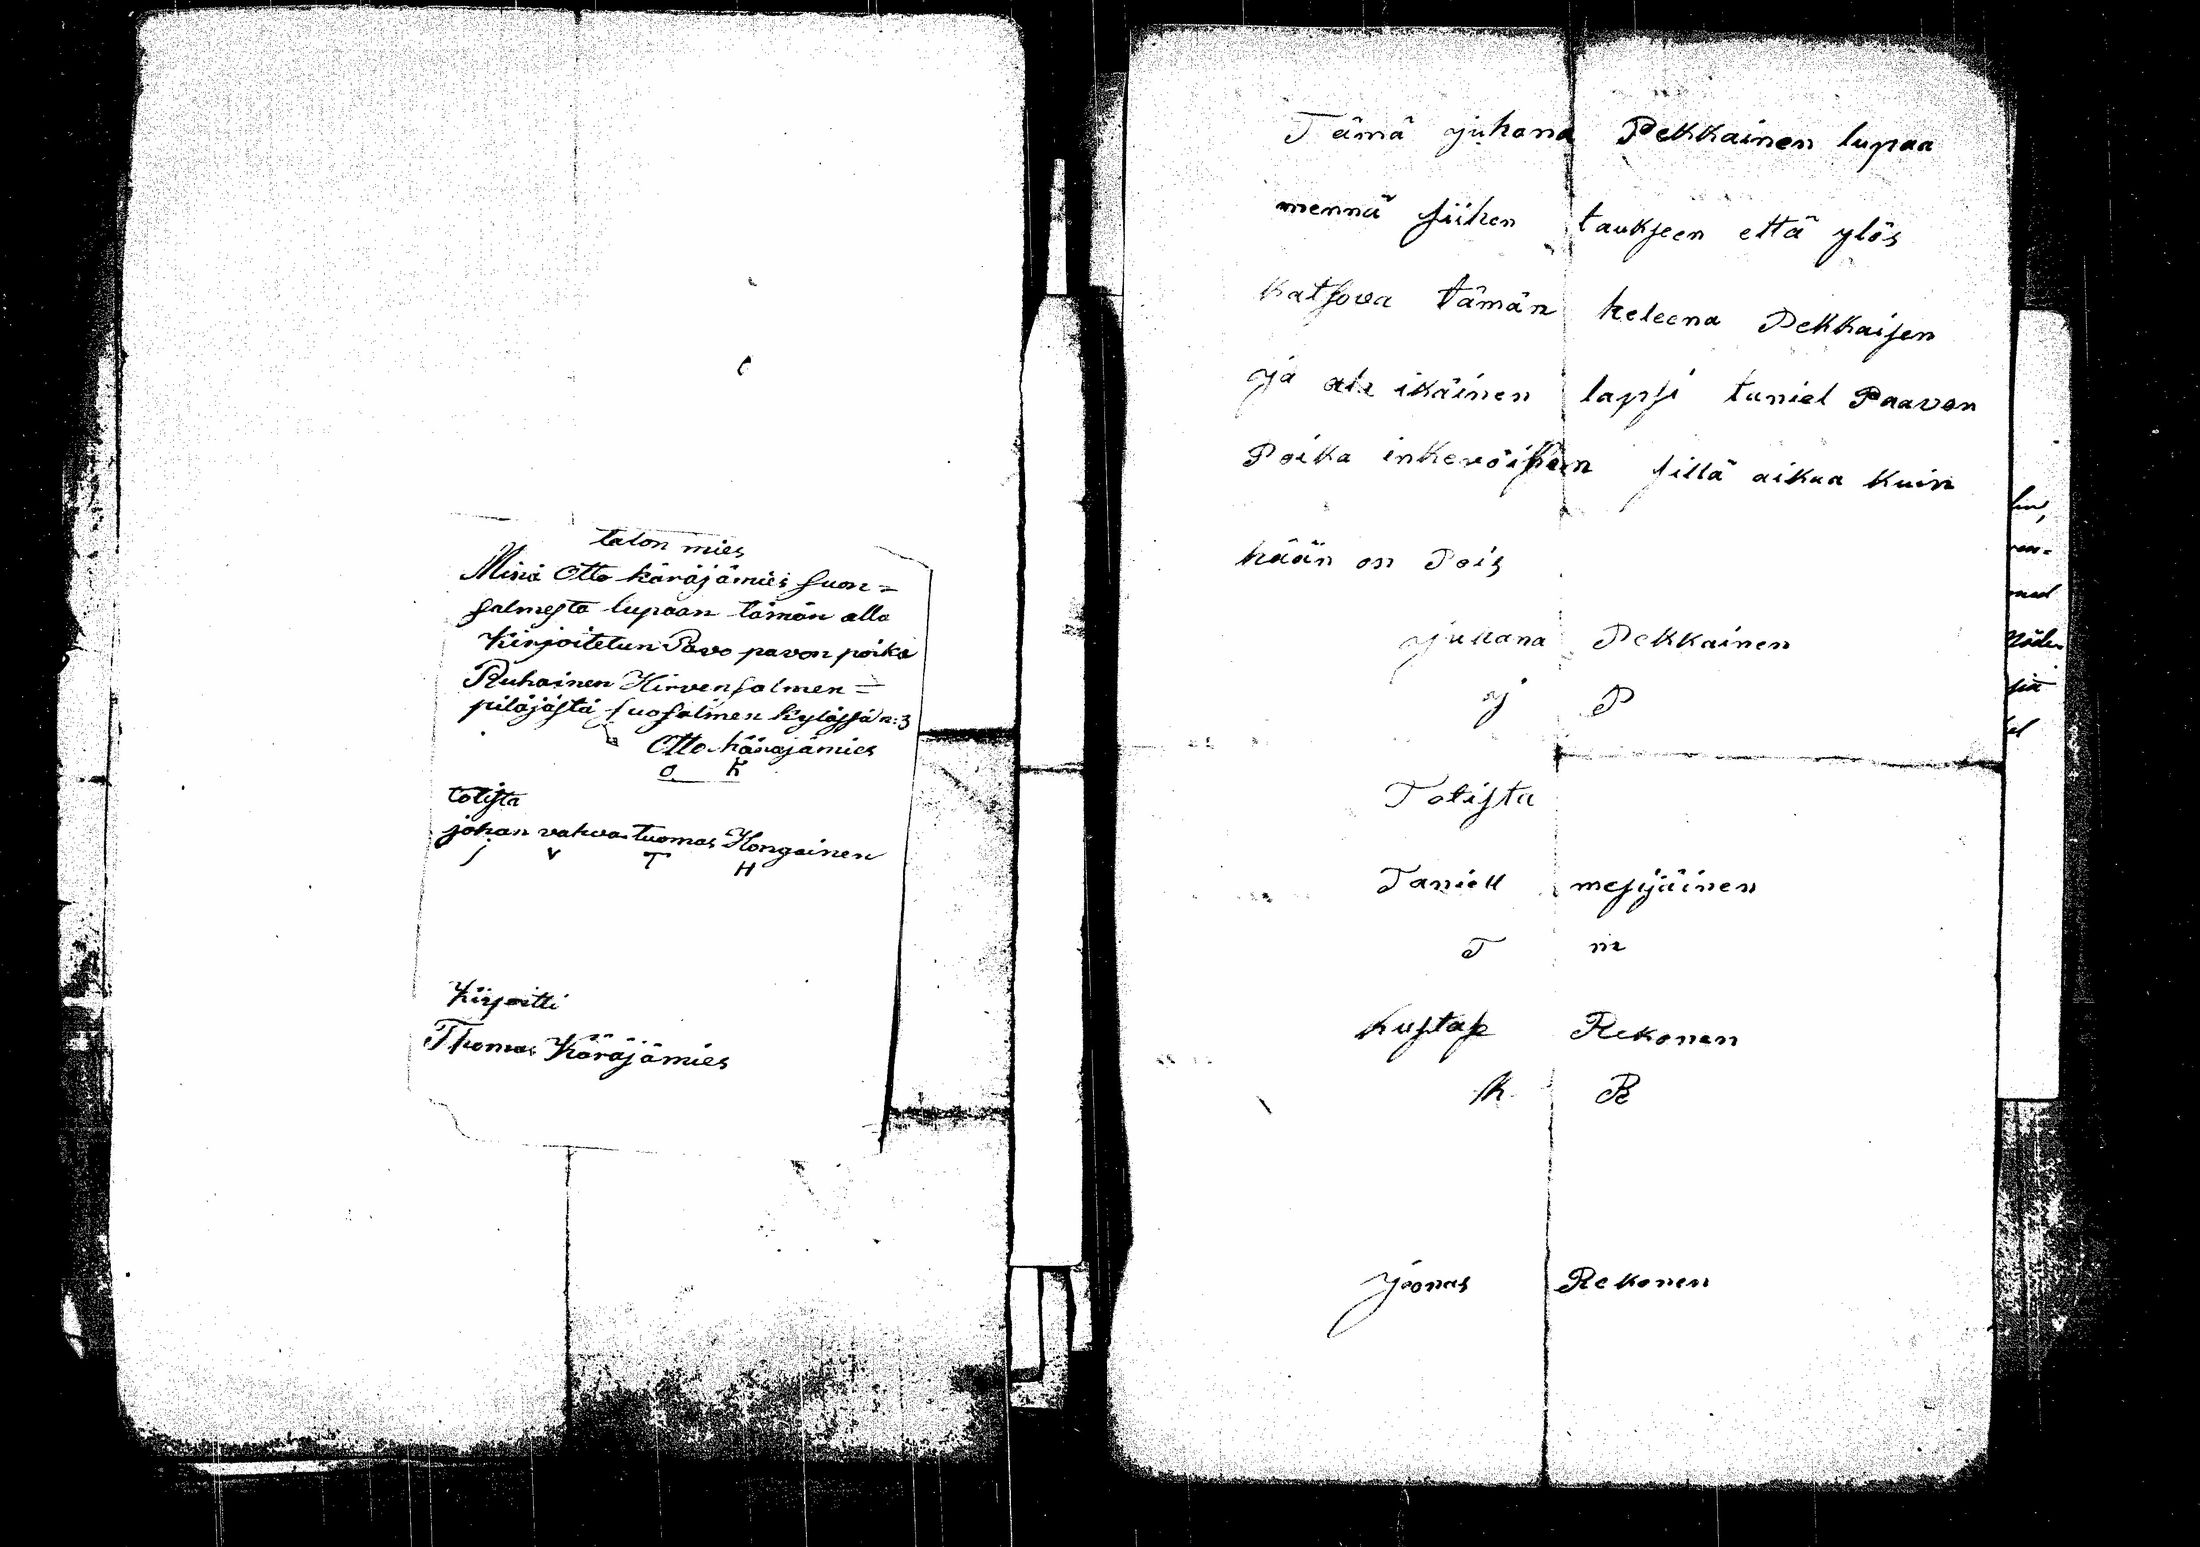 talon mies
Minä Otto käräjämies suon=
salmesta lupaan tämän alla
Kirjoitetun Pavo pavon poika
Ruhainen Hirvensalmen=
piläjästä suosalmen kylässä n:3
Otto käräjämies
O K
totista
johan vahva tuomas Hongainen
J V T H
Kirjoitti
Thomas Käräjämies
Tämä juhana Pekkainen lupaa
mennä siihen taukseen että ylös
katsova tämän heleena Pekkaisen
ja ala ikäinen lapsi taniel Paavon
Poika sillä aikaa kuin
hään on Pois
juhana Pekkainen
j P
Totista
Taniell messjäinen
T m
kustaf Rekonen
k R
Joonas Rekonen